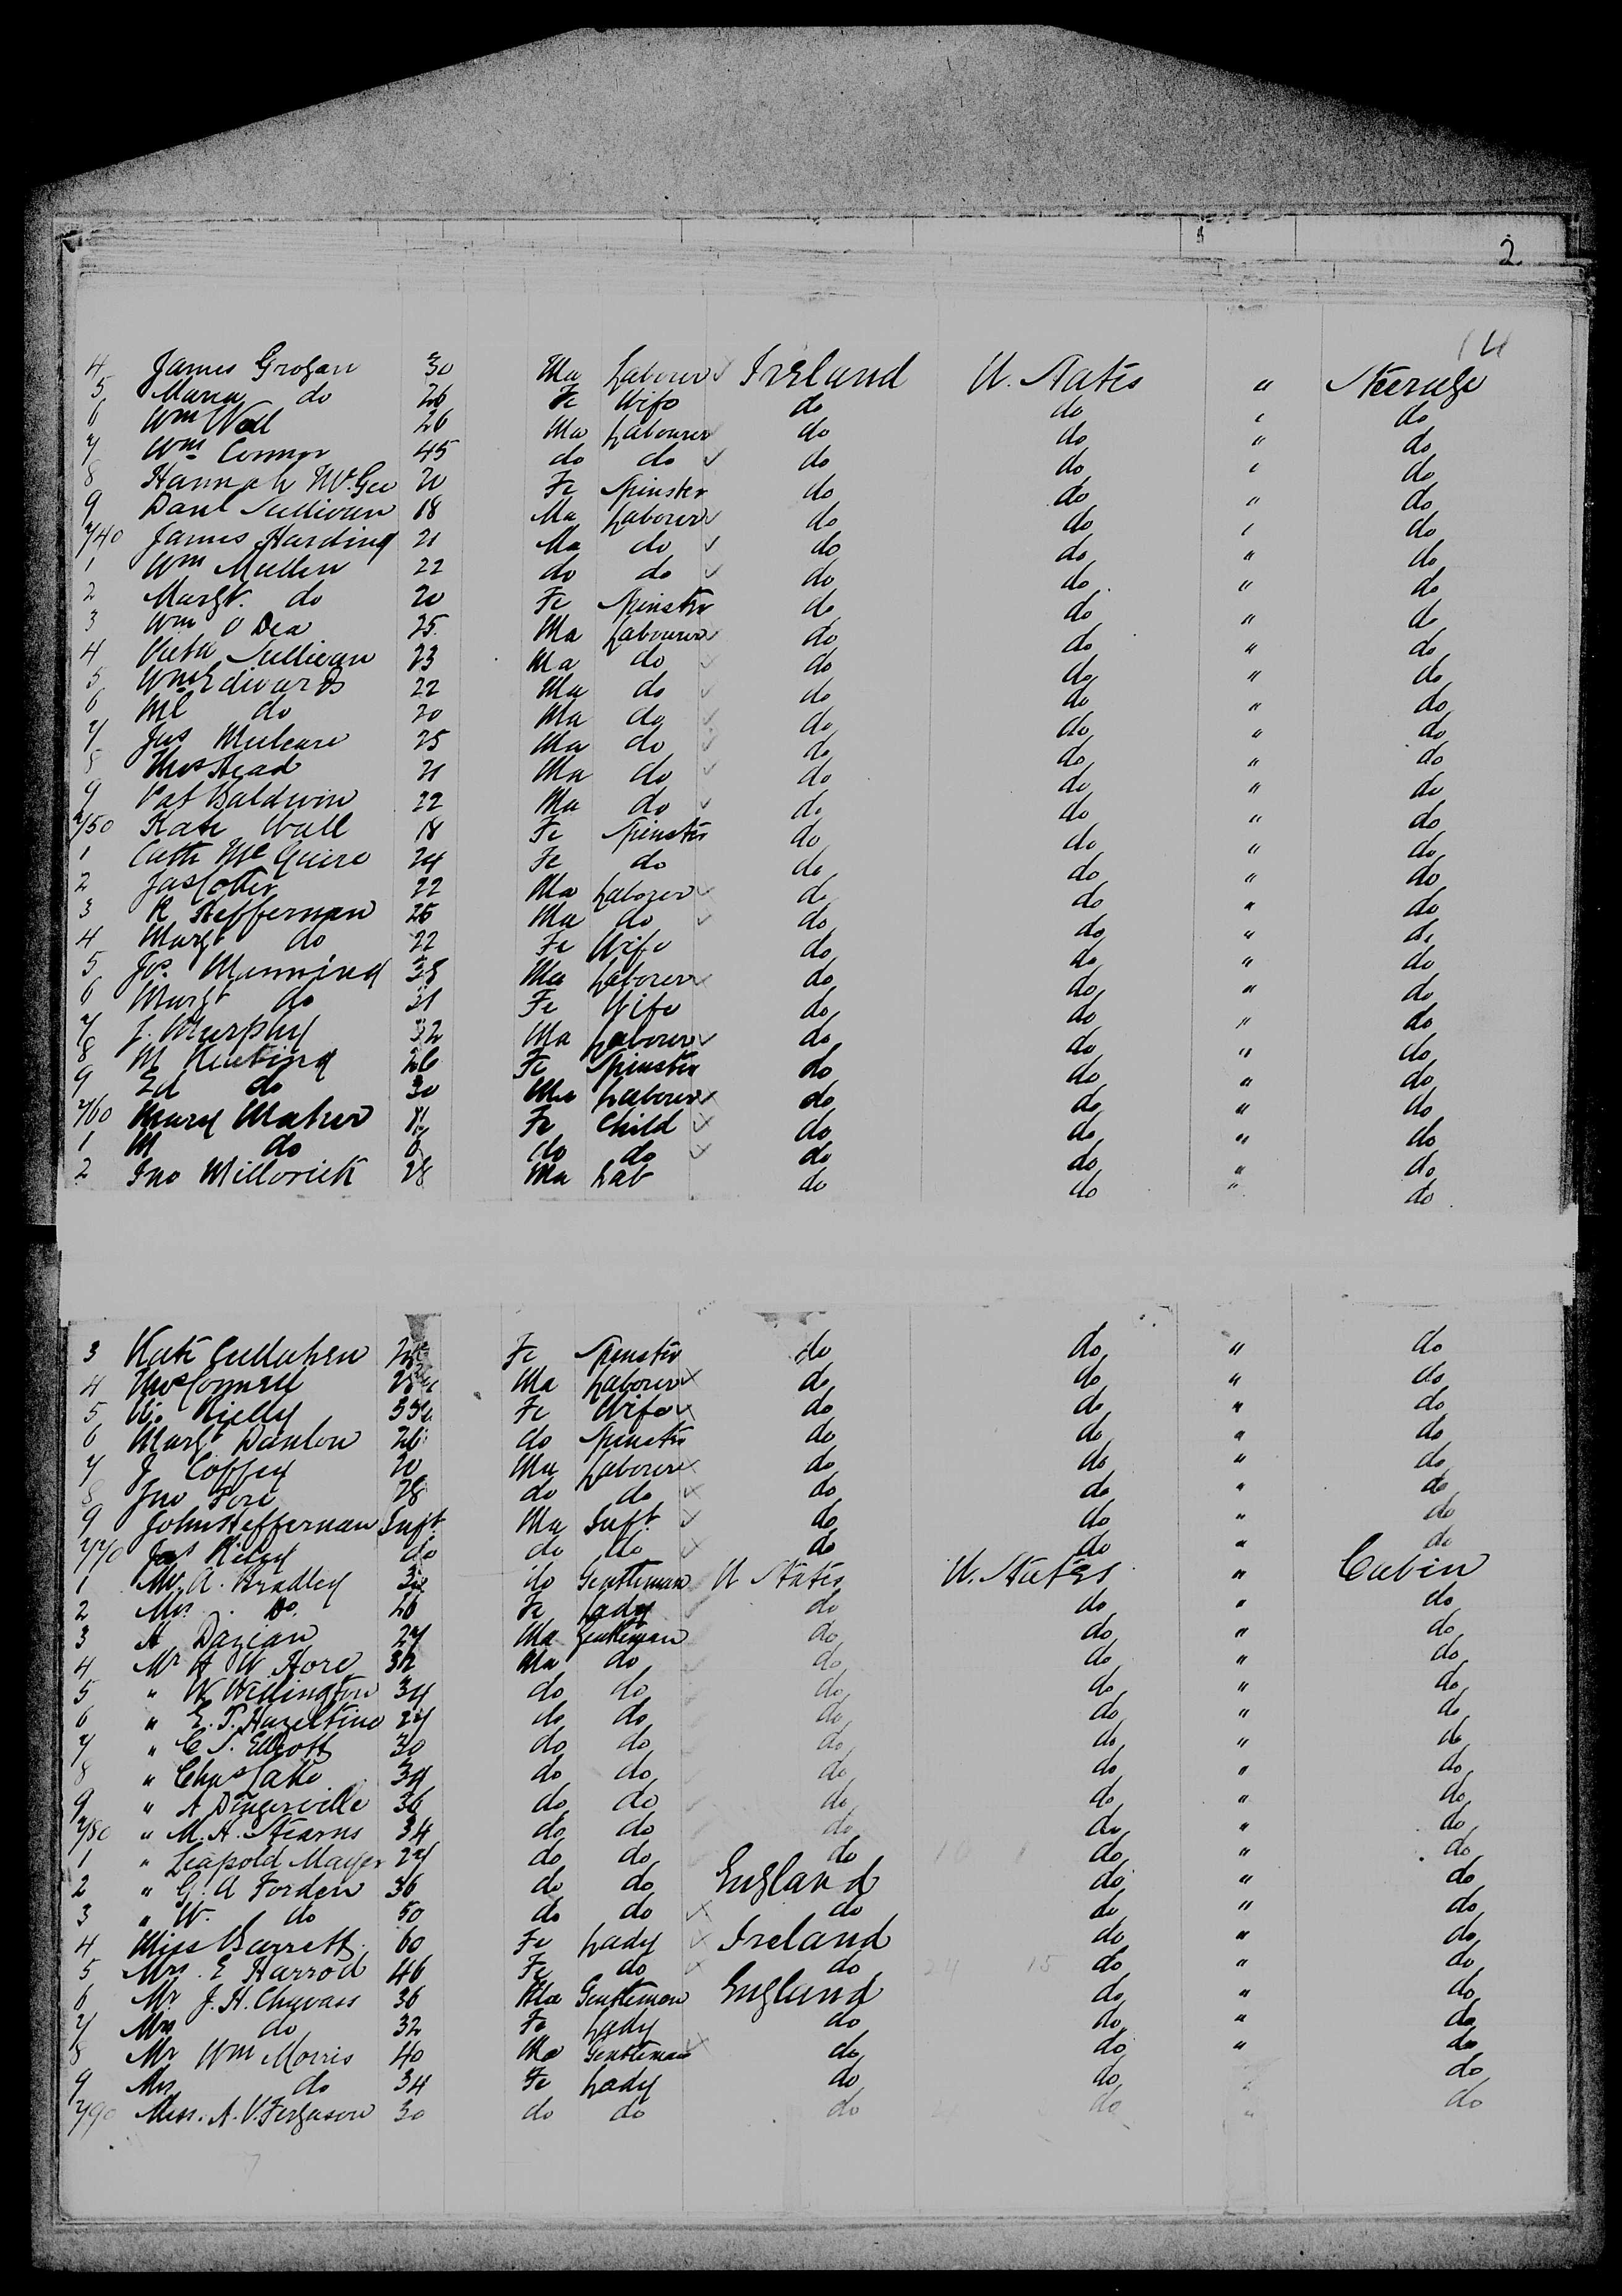 2
14
4 James Grogan 30 Ma Laborer Ireland U. States " Steerage
5 Maria do 26 Fe Wife do do " do
6 Wm Wall 26 Ma Labourer do do " do
7 Wm Connor 45 do do do do " do
8 Hannah McGee 20 Fe Spinster do do " do
9 Danl Sullivan 18 Ma Laborer do do " do
740 James Harding 21 Ma do do do " do
1 Wm Mullen 22 do do do do " do
2 Margt. do 20 Fe Spinstr do do " do
3 Wm O Dea 25 Ma Labourer do do " do
4 Sullivan 23 Ma do do do " do
5 Wm Edwards 22 Ma do do do " do
6 Ml do 20 Ma do do do " do
7 Jas 25 Ma do do do " do
8 Thos Head 21 Ma do do do " do
9 Pat Baldwin 22 Ma do do do " do
750 Kate Wall 18 Fe Spinster do do " do
1 Cath McGuire 24 Fe do do do " do
2 Jas Cotter 22 Ma Laborer do do " do
3 R Heffernan 25 Ma do do do " do
4 Margt do 22 Fe Wife do do " do
5 Jos. Manning 38 Ma Laborer do do " do
6 Margt do 31 Fe Wife do do " do
7 J. Murphy 32 Ma Laborer do do " do
8 M Keating 26 Fe Spinster do do " do
9 Ed do 30 Ma Laborer do do " do
760 Mary Maher 11 Fe Child do do " do
1 M do do do do do " do
2 Jno Millorick 28 Ma Lab do do " do
3 Kate Cullahen Fe Spinster do do " do
4 Thos Connell Ma Laborer do do " do
5 Rielly Fe Wife do do " do
6 Margt Danlon 26 do Spinster do do " do
7 J Coffey 20 Ma Laborer do do " do
8 Jno Fore 28 do do do do " do
9 John Heffernan Inft. Ma Inft. do do " do
770 Jas Riley do do do do do " do
1 Mr. A. Bradley 32 do Gentleman U States U. States " Cabin
2 Mrs. Do. 26 Fe Lady do do " do
3 A Dazian 27 Ma Gentleman do do " do
4 Mr H W. Hore 32 Ma do do do " do
5 " W Willington 34 do do do do " do
6 " E. P. Hazeltine 27 do do do do " do
7 " C S. Ellcott 30 do do do do " do
8 " Chas Catto 34 do do do do " do
9 " A Dingerville 36 do do do do " do
780 " M. H. Stearns 34 do do do do " do
1 " Leopold Mayer 27 do do do 10 1 do " do
2 " G. A Forden 36 do do England do " do
3 " W. do 50 do do do do " do
4 Miss Barrett 60 Fe Lady Ireland do " do
5 Mrs. E Harrod 46 Fe do do 24 15 do " do
6 Mr J. H. Chavass 36 Ma Gentleman England do " do
7 Mrs do 32 Fe Lady do do " do
8 Mr Wm Morris 40 Ma Gentleman do do " do
9 Mrs do 34 Fe Lady do do " do
790 Miss. A. V. Ferguson 30 do do do do " do